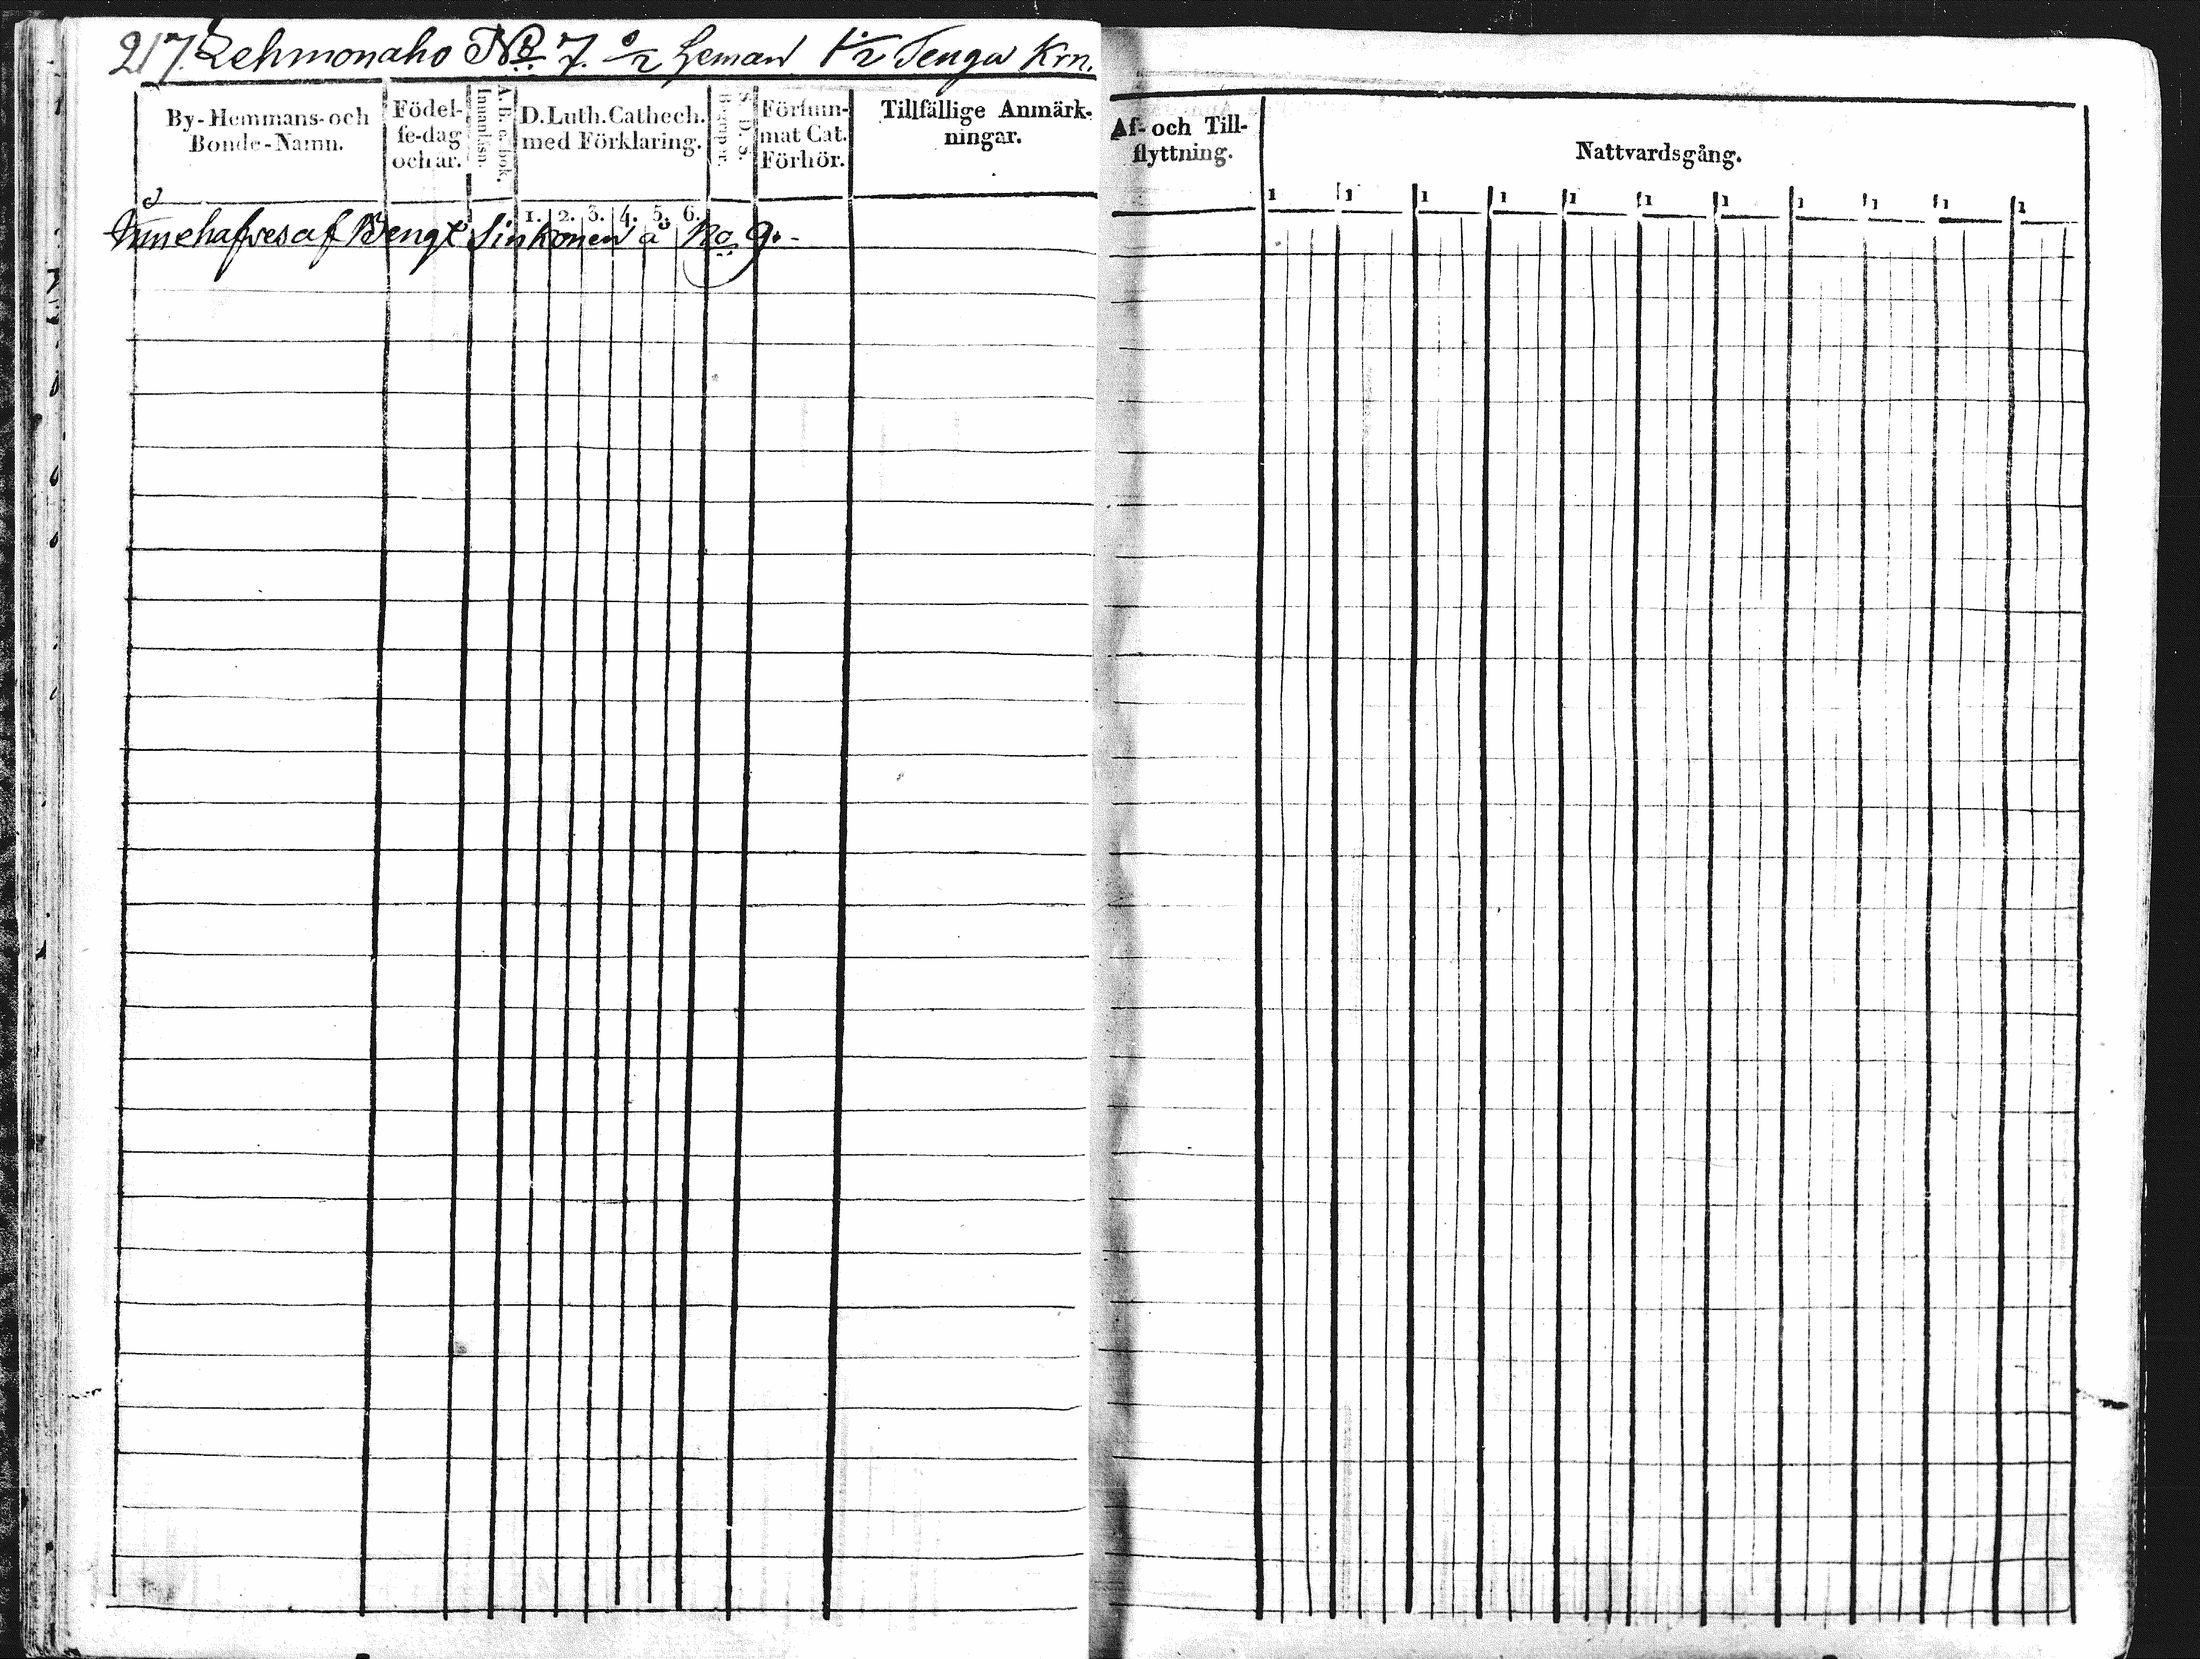 217. Lehmonaho No 7. Leman 1/2 Tenga Krn.
By-Hemmans- och
Bonde-Namn.
Födel-
se-dag
och år.
Innanläsn.
A. b. c. bok.
D. Luth. Cathech.
med Förklaring.
1. 2. 3. 4. 5. 6.
S. D. S.
Begrepp.
Försum-
mat Cat.
Förhör.
Tillfällige Anmärk-
ningar.
Innehafves af Bengt Sinkonen å No 9.
Af- och Till-
flyttning.
Nattvardsgång.
1 1 1 1 1 1 1 1 1 1 1